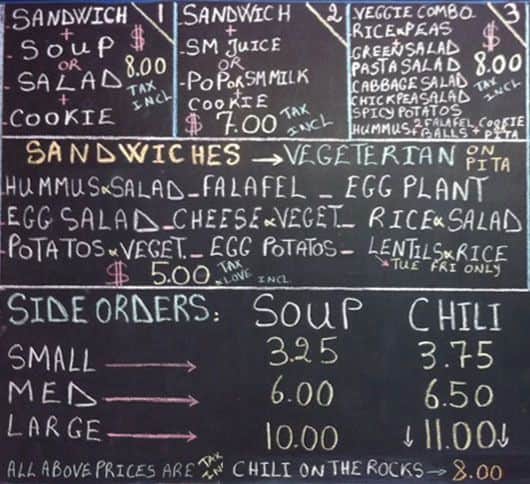 SANDWICH 1
+
- SOUP $
OR 8.00
- SALAD TAX
+ INCL
- COOKIE
SANDWICH 2
+
- SM JUICE
OR
- POP OR SM MILK
COOKIE
$ 7.00 TAX INCL
VEGGIE COMBO 3
RICE & PEAS $
GREEN SALAD
PASTA SALAD 8.00
CABBAGE SALAD TAX
CHICKPEA SALAD INCL
SPICY POTATOS
HUMMUS + 2 FALAFEL BALLS + COOKIE PITA
SANDWICHES → VEGETERIAN ON PITA
HUMMUS & SALAD - FALAFEL - EGG PLANT
EGG SALAD - CHEESE & VEGET. - RICE & SALAD
POTATOS & VEGET. - EGG POTATOS - LENTILS & RICE
TUE FRI ONLY
$ 5.00 TAX & LOVE INCL
SIDE ORDERS: SOUP CHILI
SMALL → 3.25 3.75
MED → 6.00 6.50
LARGE → 10.00 ↓ 11.00 ↓
ALL ABOVE PRICES ARE TAX INC CHILI ON THE ROCKS → 8.00